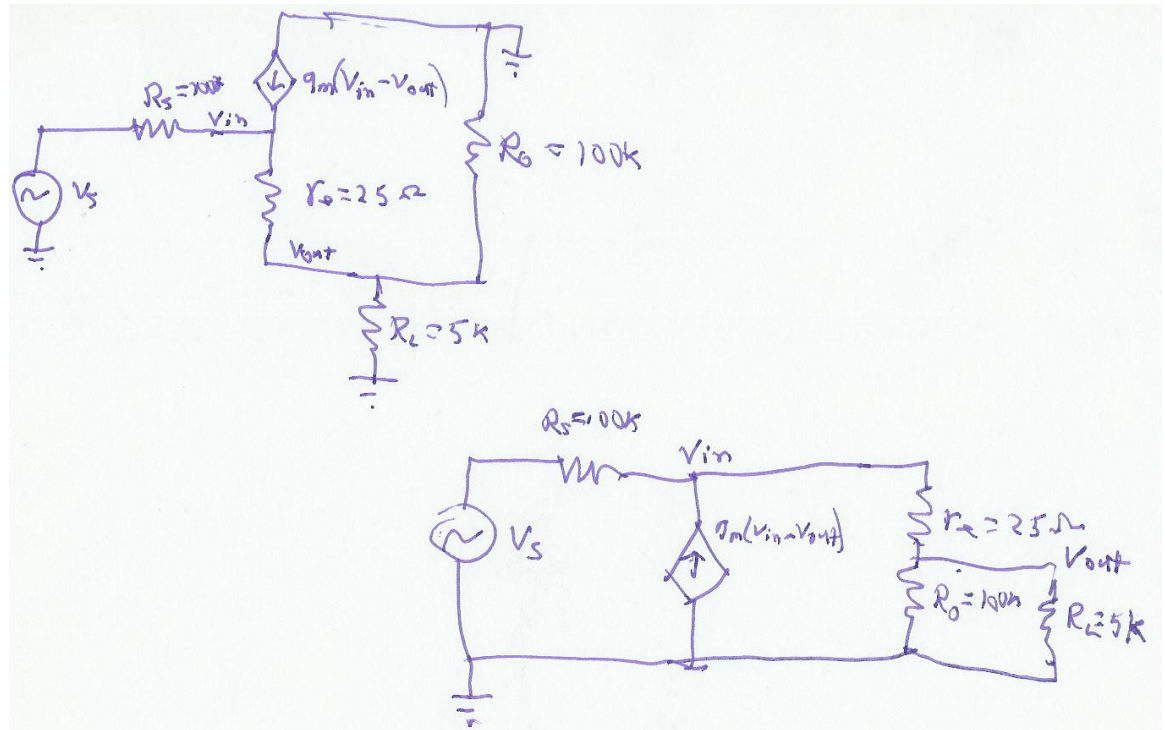 gm(Vin-Vout)
Vin
Vs
Ro = 100k
re = 25 Ω
Vout
RL = 5k
Rs=100k
Vin
Vs
gm(Vin-Vout)
re = 25Ω
Vout
Ro = 100k
RL = 5k